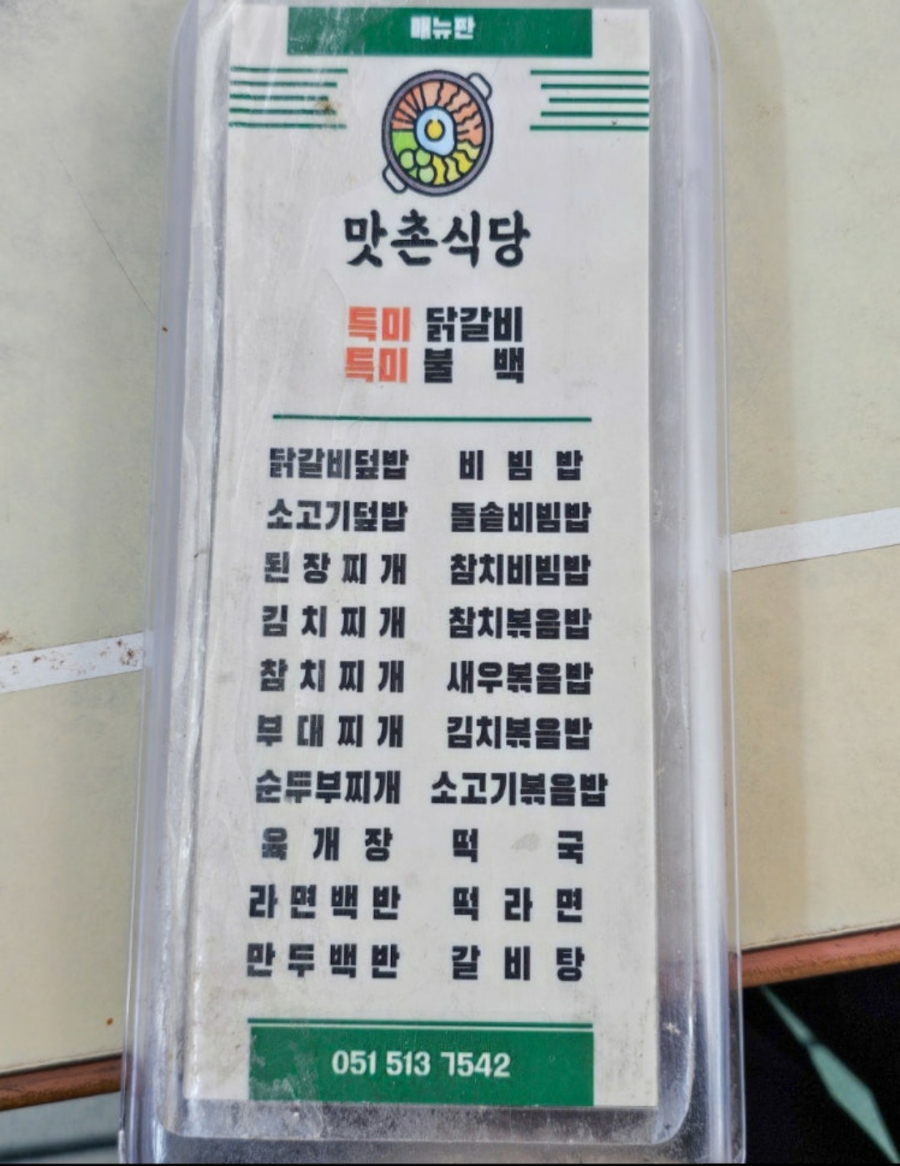 메뉴판
맛촌식당
특미 닭갈비
특미 불 백
닭갈비덮밥 비 빔 밥
소고기덮밥 돌솥비빔밥
된 장 찌 개 참치비빔밥
김 치 찌 개 참치볶음밥
참 치 찌 개 새우볶음밥
부 대 찌 개 김치볶음밥
순두부찌개 소고기볶음밥
육 개 장 떡 국
라 면 백 반 떡 라 면
만 두 백 반 갈 비 탕
051 513 7542